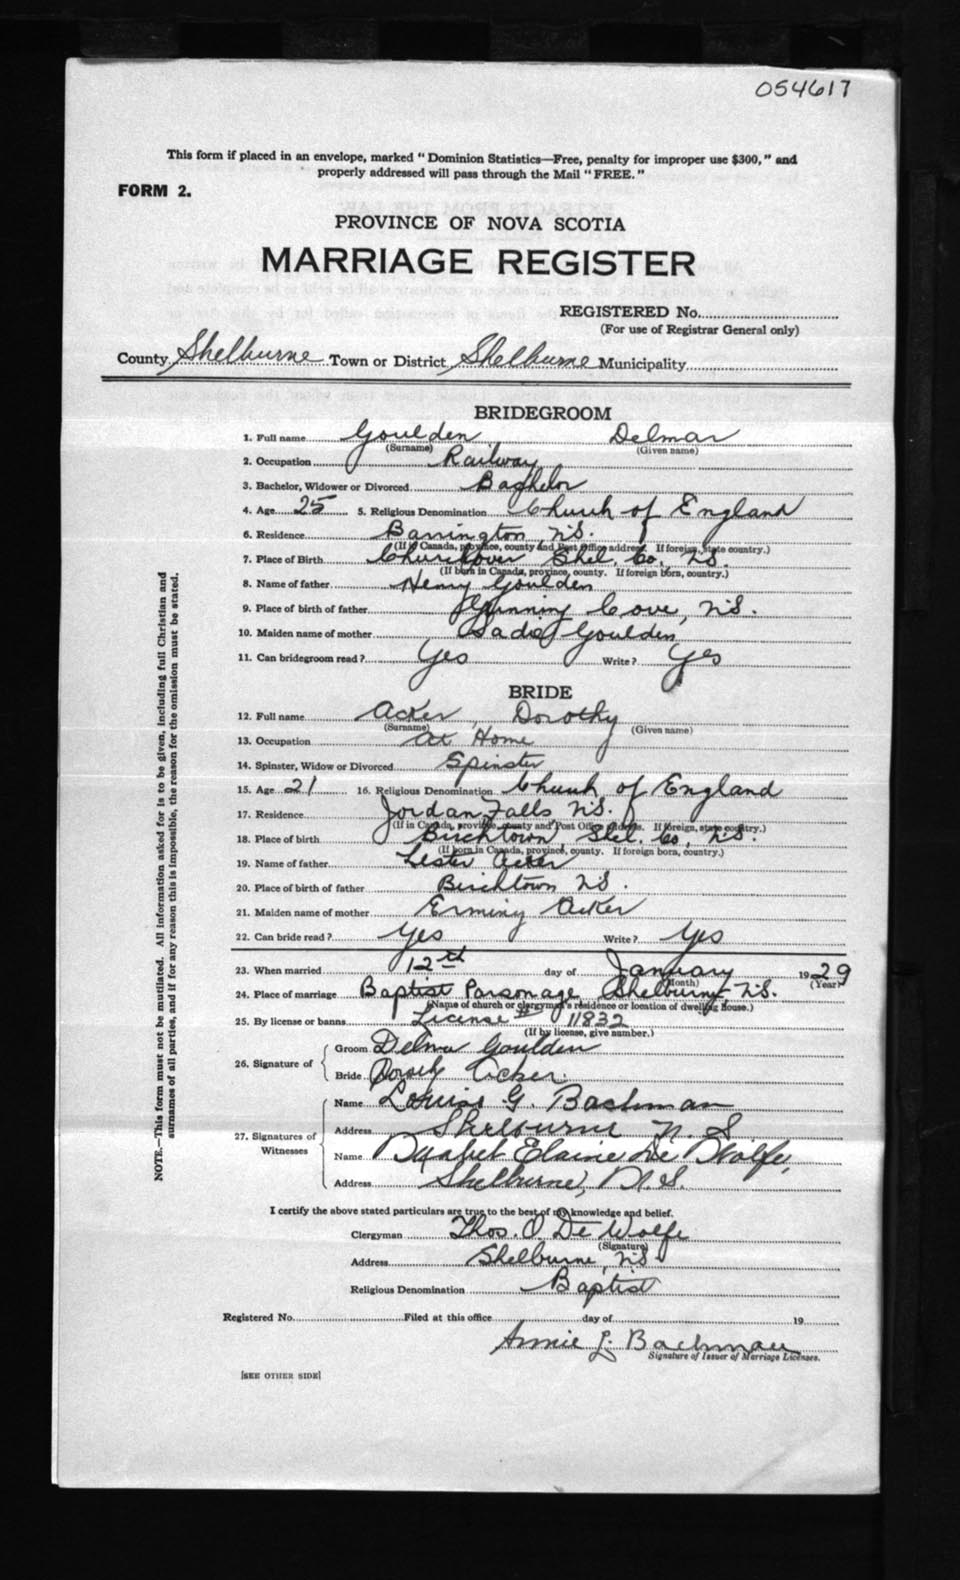 054617
This form if placed in an envelope, marked "Dominion Statistics—Free, penalty for improper use $300," and
properly addressed will pass through the Mail "FREE."
FORM 2.
PROVINCE OF NOVA SCOTIA
MARRIAGE REGISTER
REGISTERED No.
(For use of Registrar General only)
County Shelburne Town or District Shelburne Municipality
BRIDEGROOM
1. Full name Goulden Delmar
(Surname) (Given name)
2. Occupation Railway
3. Bachelor, Widower or Divorced Baghelor
4. Age 25 5. Religious Denomination Church of England
6. Residence Barrington, N.S.
(If in Canada, province, county and Post Office address. If foreign, state country.)
7. Place of Birth Churchover Shel. Co., N.S.
(If born in Canada, province, county. If foreign born, country.)
8. Name of father Henry Goulden
9. Place of birth of father Gunning Cove, N.S.
10. Maiden name of mother Sadie Goulden
11. Can bridegroom read? Yes Write? Yes
BRIDE
12. Full name Acker, Dorothy
(Surname) (Given name)
13. Occupation At Home
14. Spinster, Widow or Divorced Spinster
15. Age 21 16. Religious Denomination Church of England
17. Residence Jordan Falls N.S.
(If in Canada, province, county and Post Office address. If foreign, state country.)
18. Place of birth Birchtown Shel. Co., N.S.
(If born in Canada, province, county. If foreign born, country.)
19. Name of father Lester Acker
20. Place of birth of father Birchtown N.S.
21. Maiden name of mother Erminy Acker
22. Can bride read? Yes Write? Yes
23. When married 12th day of January 1929
(Month) (Year)
24. Place of marriage Baptist Parsonage Shelburne, N.S.
(Name of church or clergyman's residence or location of dwelling house.)
25. By license or banns License # 11832
(If by license, give number.)
26. Signature of
Groom Delma Goulden
Bride Acker
27. Signatures of
Witnesses
Name Louise G. Bachman
Address Shelburne N. S.
Name Elaine De Wolfe,
Address Shelburne, N.S.
I certify the above stated particulars are true to the best of my knowledge and belief.
Clergyman Thos. O. De Wolfe
(Signature)
Address Shelburne, N.S.
Religious Denomination Baptist
Registered No. Filed at this office day of 19
Annie L. Bachman
Signature of Issuer of Marriage Licenses.
[SEE OTHER SIDE]
NOTE.—This form must not be mutilated. All information asked for is to be given, including full Christian and
surnames of all parties, and if for any reason this is impossible, the reason for the omission must be stated.